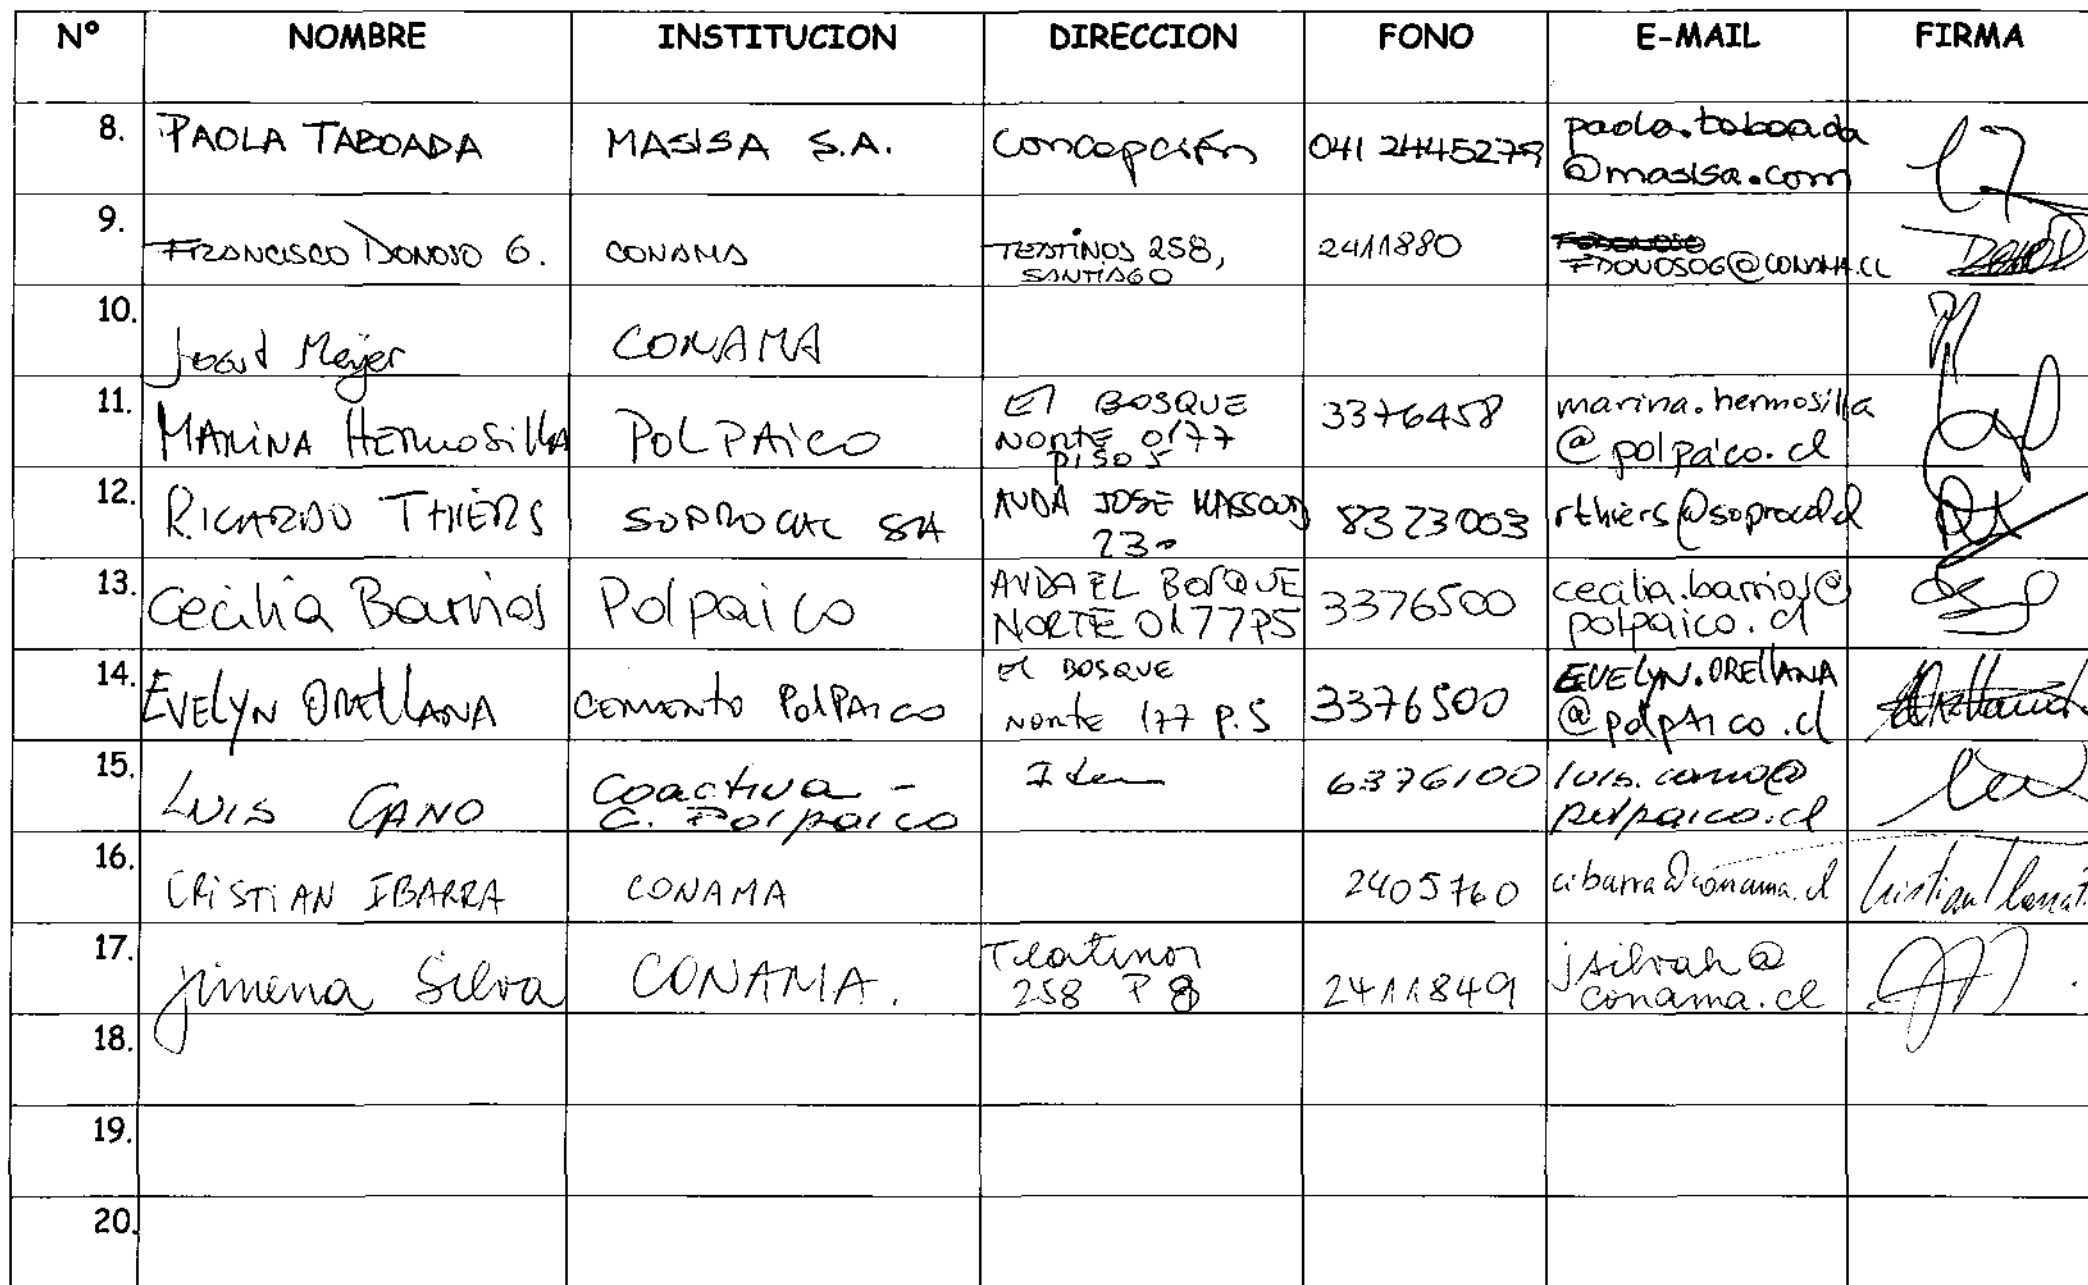 Nº NOMBRE INSTITUCION DIRECCION FONO E-MAIL FIRMA
8. PAOLA TABOADA MASISA S.A. Concepción 041 2445279 paola.taboada
@masisa.com
9. FRANCISCO DONOSO G. CONAMA TEATINOS 258, 2411880
SANTIAGO FDONOSOG@CONAMA.CL
10. Joost Meijer CONAMA
11. MARINA HERMOSILLA POLPAICO El BOSQUE 3376458 marina.hermosilla
NORTE 0177 @polpaico.cl
PISO 5
12. RICARDO THIERS SOPROCAL SA AVDA JOSE 8323003 rthiers@soprocal.cl
230
13. Cecilia Barrios Polpaico AVDA EL BOSQUE 3376500 cecilia.barrios@
NORTE 0177 P5 polpaico.cl
14. EVELYN ORELLANA Cemento POLPAICO El BOSQUE 3376500 EVELYN.ORELLANA
Norte 177 P.5 @polpAico.cl
15. LUIS CANO Coactiva - Idem 6376100 luis.cano@
C. Polpaico polpaico.cl
16. CRISTIAN IBARRA CONAMA 2405760 cibarra@conama.cl
17. Jimena Silva CONAMA. Teatinos 2411849 jsilvah@
258 P 8 conama.cl
18.
19.
20.